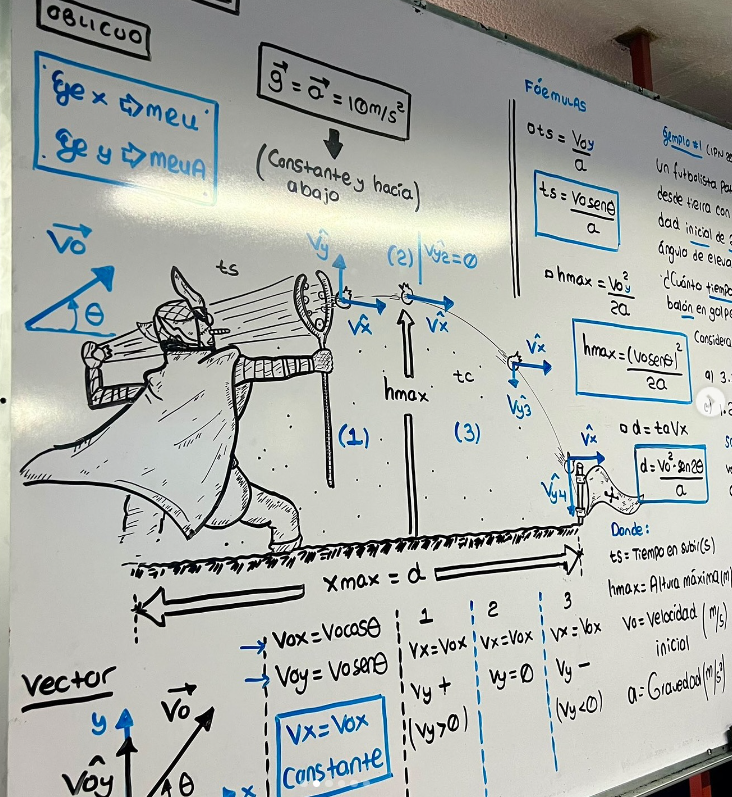 OBLICUO
Eje x ⇨ MRU
Eje y ⇨ MRUA
g = a = 10m/s²
(Constante y hacia)
abajo
Vo
θ
ts
Vy
Vx
(2) Vy2=0
Vx
hmax
(1)
tc
(3)
Vx
Vy3
Vx
Vy4
xmax = d
FÓRMULAS
ts = Voy
a
ts = Vosenθ
a
hmax = Voy²
2a
hmax = (Vosenθ)²
2a
d = taVx
d = Vo²·sen2θ
a
Donde:
ts = Tiempo en subir(s)
hmax = Altura máxima(m)
Vo = Velocidad (m/s)
inicial
a = Gravedad (m/s²)
Ejemplo #1 (IPN
Un futbolista
desde tierra con
dad inicial de
ángulo de
¿Cuánto tiempo
balón en
a) 3.
Vox = Vocosθ
Voy = Vosenθ
Vx = Vox
Constante
1
Vx = Vox
Vy +
(Vy>0)
2
Vx = Vox
Vy = 0
3
Vx = Vox
Vy −
(Vy<0)
Vector
y
Vo
Voy
θ
x